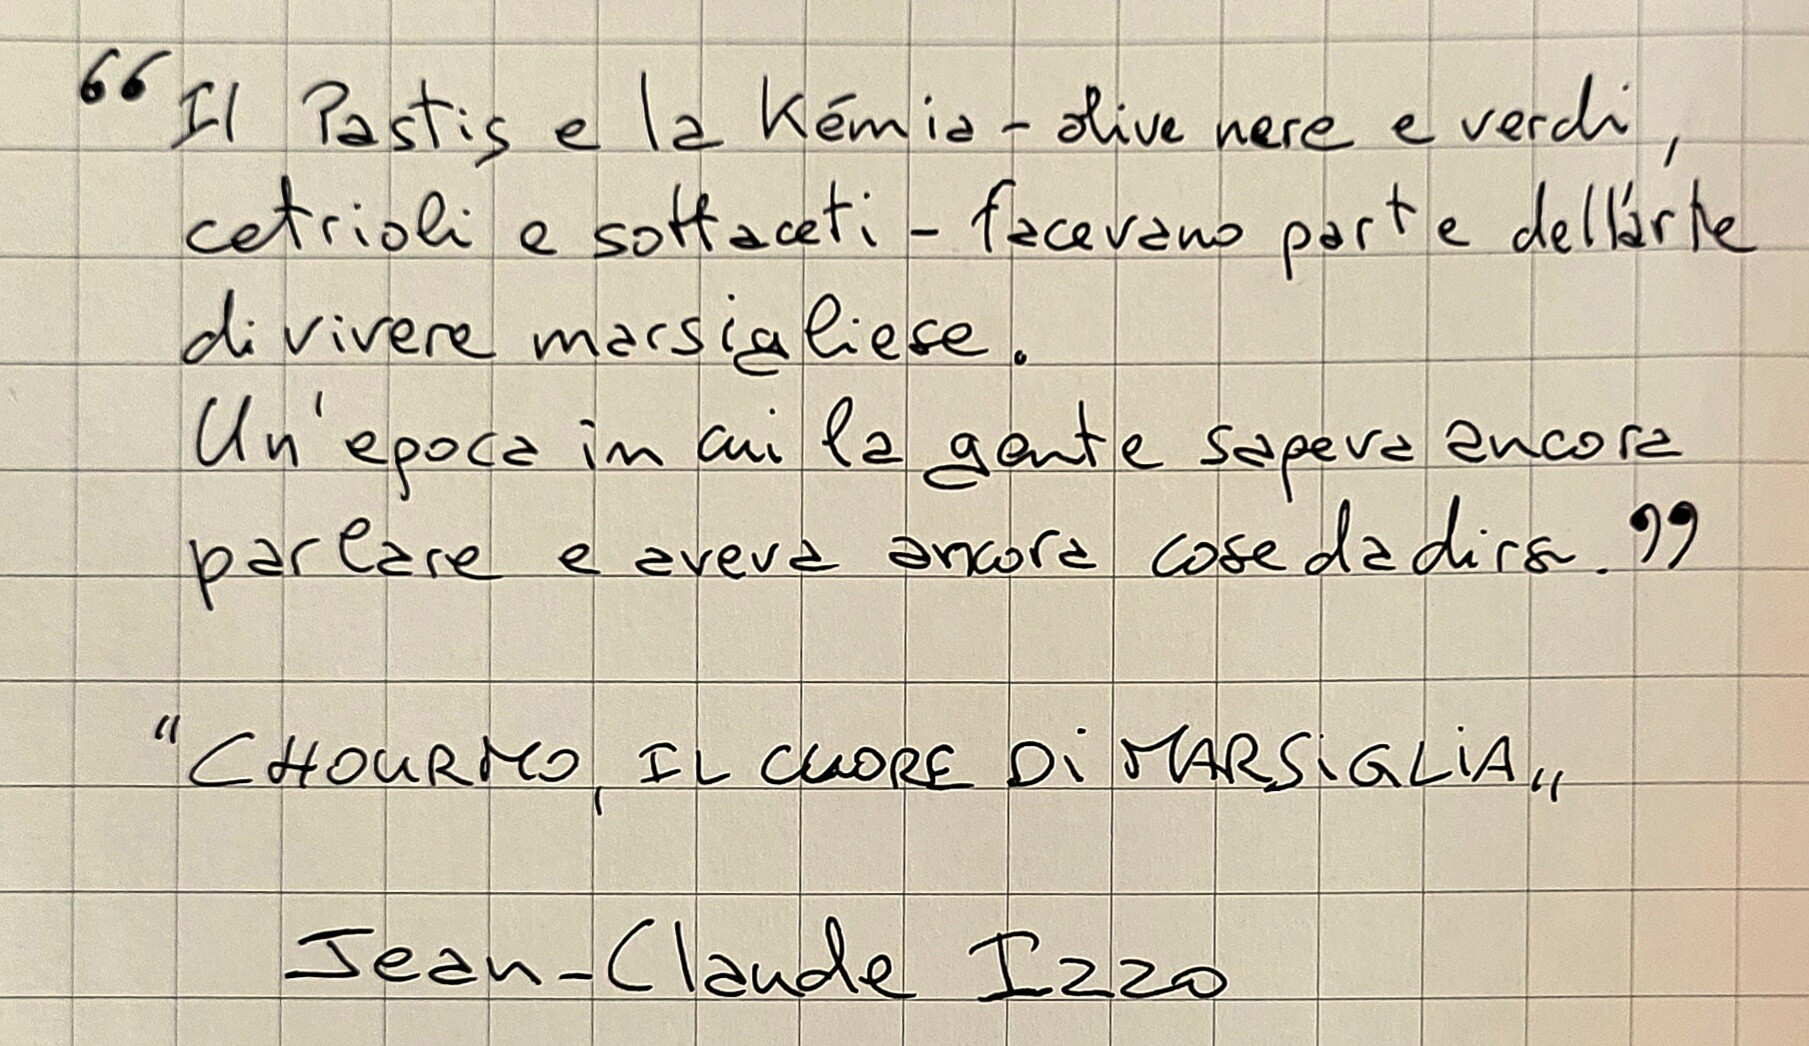 “Il Pastis e la Kémia - olive nere e verdi,
cetrioli e sottaceti - facevano parte dell'arte
di vivere marsigliese.
Un'epoca in cui la gente sapeva ancora
parlare e aveva ancora cose da dire.”
"CHOURMO, IL CUORE Di MARSiGLiA„
Jean-Claude Izzo